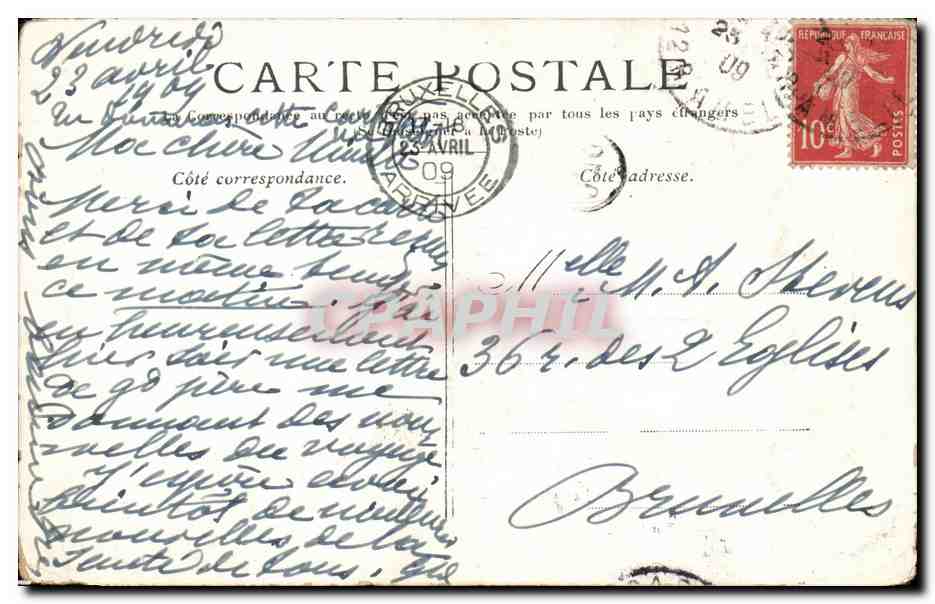 Vendredi
23 avril
1909
CARTE POSTALE
La Correspondance au recto n'est pas acceptée par tous les pays étrangers
(Se renseigner à la Poste)
Ma chère
Côté correspondance.
Côté adresse.
BRUXELLES
23 AVRIL
09
ARRIVEE
RÉPUBLIQUE FRANÇAISE
10c
POSTES
Merci de ta carte
et de ta lettre reçues
en même temps
ce matin. J'ai
eu heureusement
hier soir une lettre
de gd père me
donnant des nou
velles du voyage
J'espère avoir
bientôt de
nouvelles de la
santé de tous.
Melle M. A. Stevens
36 r. des 2 Eglises
Bruxelles
CPAPHIL